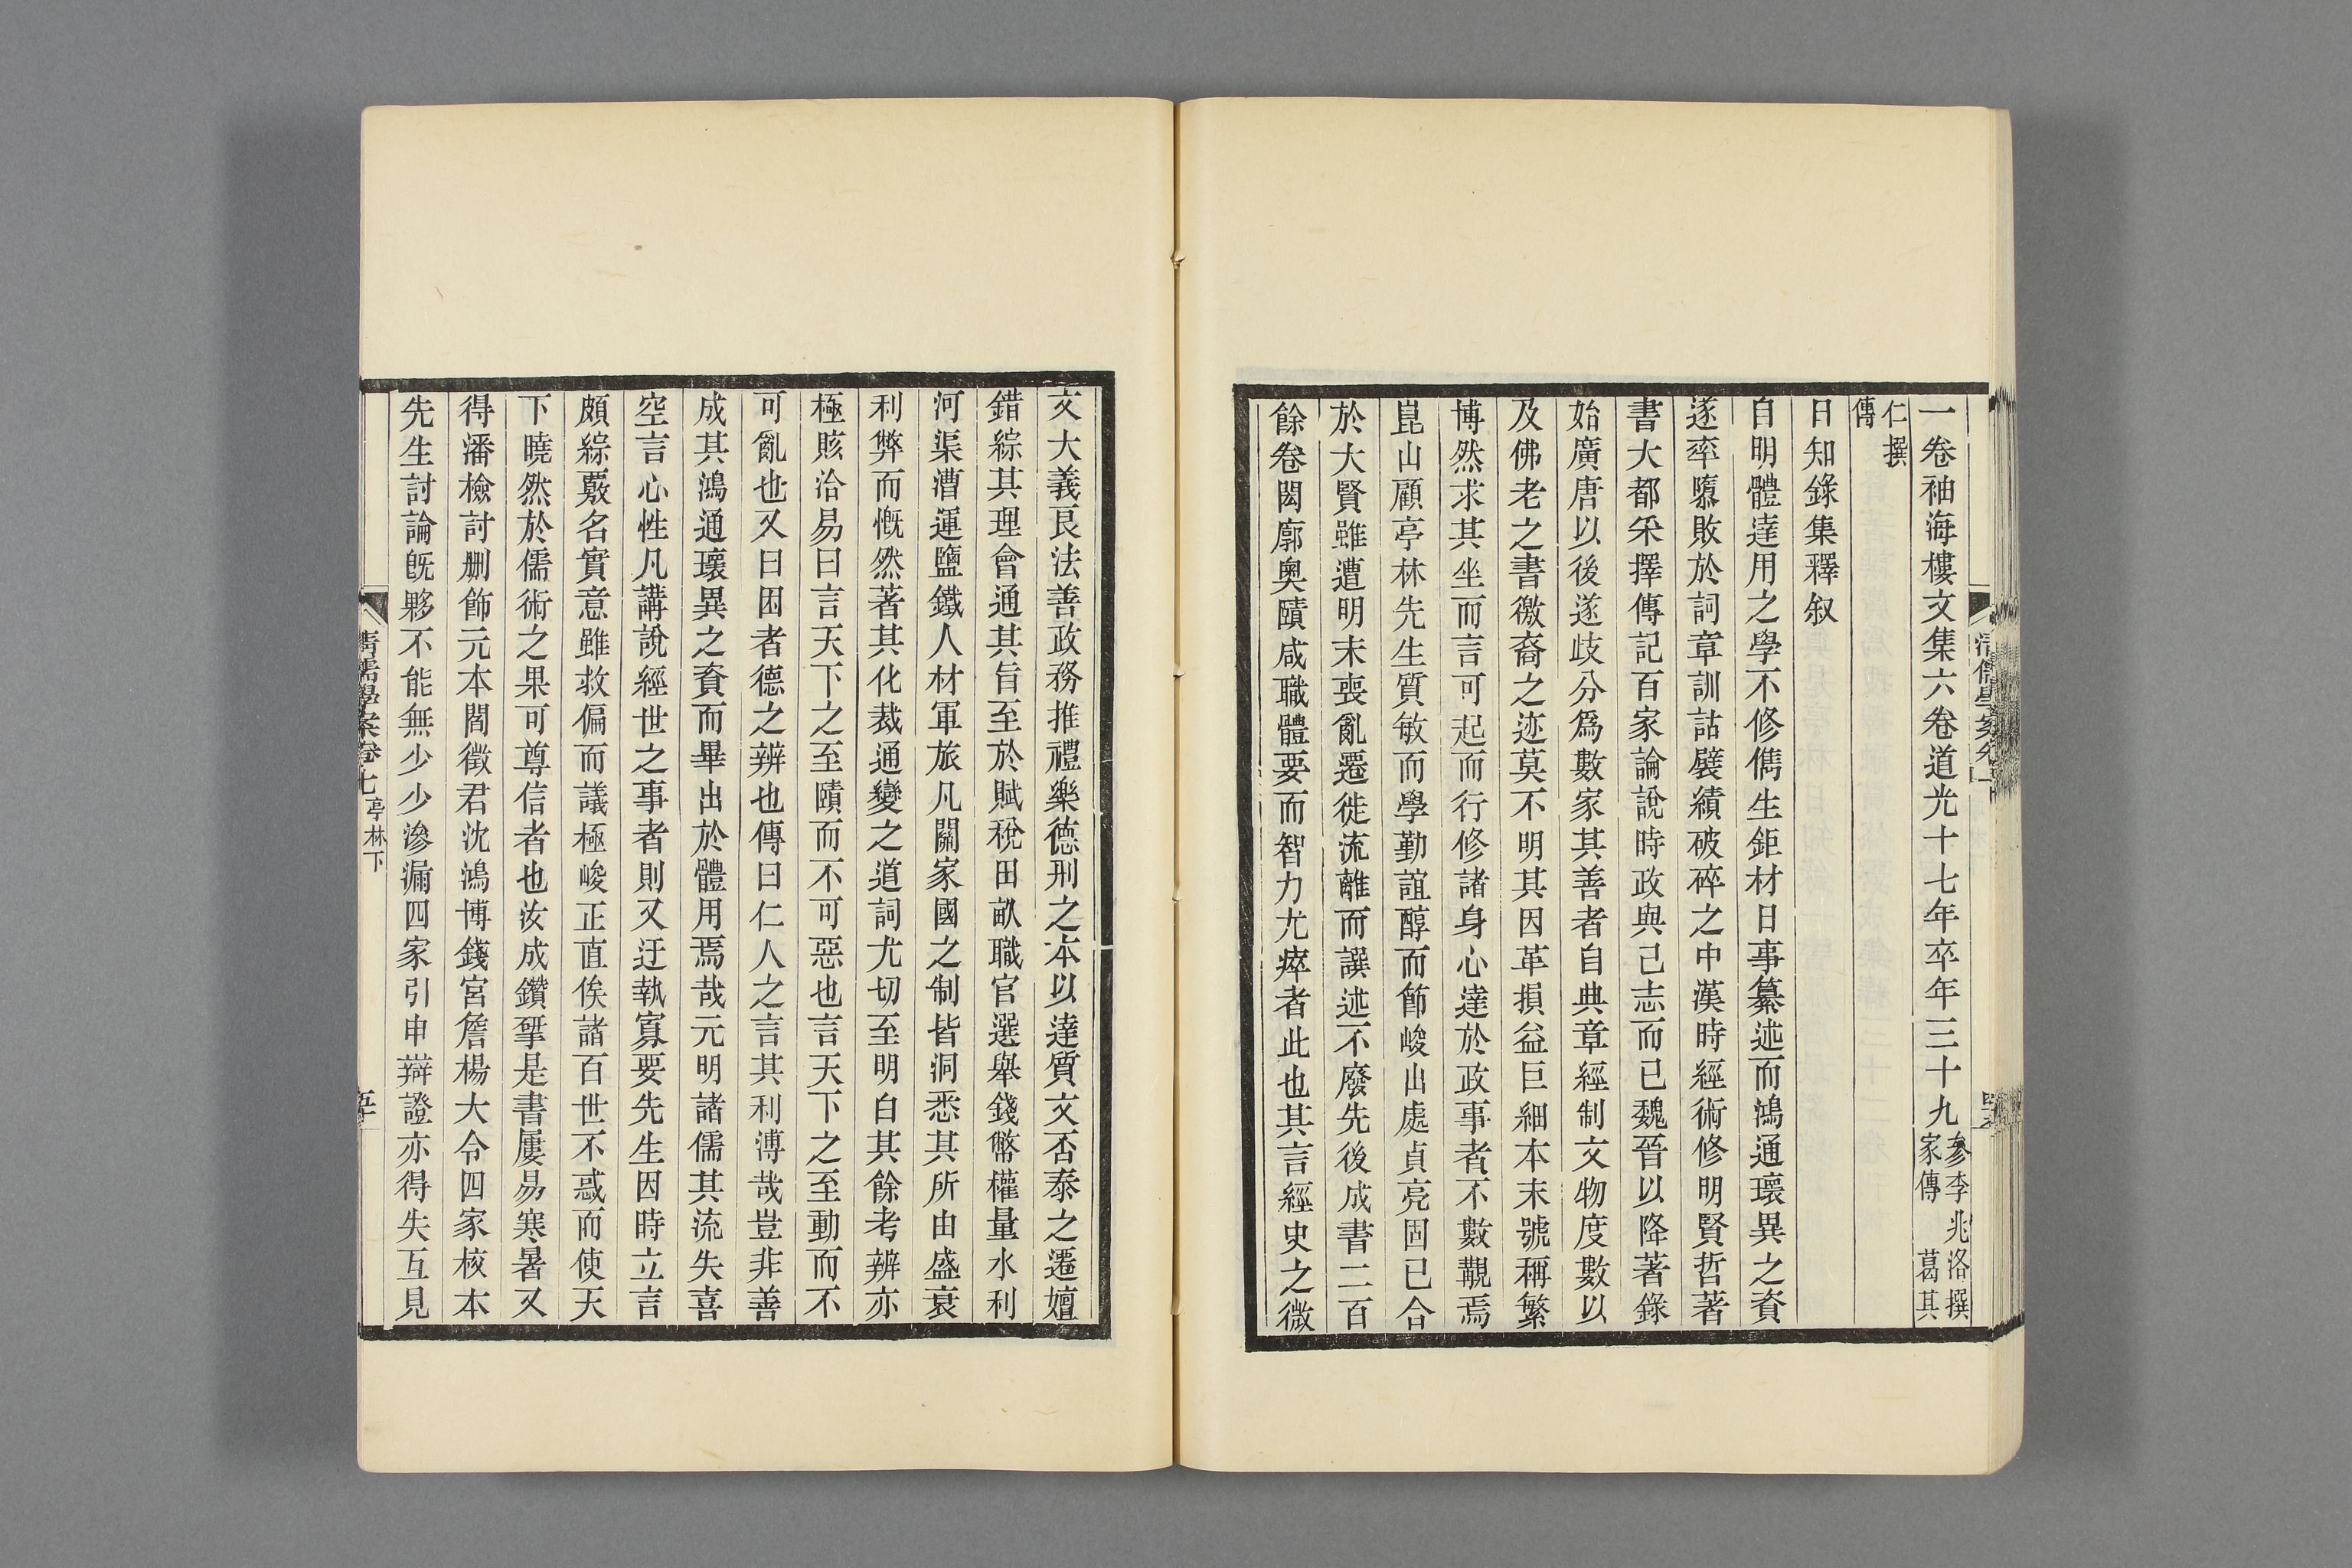 一卷袖海樓文集六卷道光十七年卒年三十九參李兆洛撰家傳 葛其
仁撰傳
日知錄集釋叙
自明體達用之學不修儁生鉅材日事纂述而鴻通瓌異之資
遂率隳敗於詞章訓詁襞績破碎之中漢時經術修明賢哲著
書大都采擇傳記百家論說時政與己志而已魏晉以降著錄
始廣唐以後遂歧分爲數家其善者自典章經制文物度數以
及佛老之書徼裔之迹莫不明其因革損益巨細本末號稱繁
博然求其坐而言可起而行修諸身心達於政事者不數覯焉
崑山顧亭林先生質敏而學勤誼醇而節峻出處貞亮固已合
於大賢雖遭明末喪亂遷徙流離而譔述不廢先後成書二百
餘卷閎廓奧賾咸職體要而智力尤瘁者此也其言經史之微
文大義良法善政務推禮樂德刑之本以達質文否泰之遷嬗
錯綜其理會通其旨至於賦稅田畝職官選舉錢幣權量水利
河渠漕運鹽鐵人材軍旅凡關家國之制皆洞悉其所由盛衰
利弊而慨然著其化裁通變之道詞尤切至明白其餘考辨亦
極賅洽易曰言天下之至賾而不可惡也言天下之至動而不
可亂也又曰困者德之辨也傳曰仁人之言其利溥哉豈非善
成其鴻通瓌異之資而畢出於體用焉哉元明諸儒其流失喜
空言心性凡講說經世之事者則又迂執寡要先生因時立言
頗綜覈名實意雖救偏而議極峻正直俟諸百世不惑而使天
下曉然於儒術之果可尊信者也汝成鑽揅是書屢易寒暑又
得潘檢討刪飾元本閻徵君沈鴻博錢宮詹楊大令四家校本
先生討論旣夥不能無少少滲漏四家引申辯證亦得失互見
清儒學案卷七 亭林下